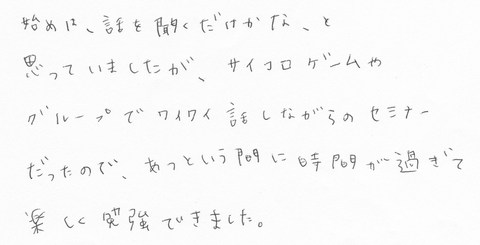 始めは、話を聞くだけかな、と
思っていましたが、サイコロゲームや
グループでワイワイ話しながらのセミナー
だったので、あっという間に時間が過ぎて
楽しく勉強できました。